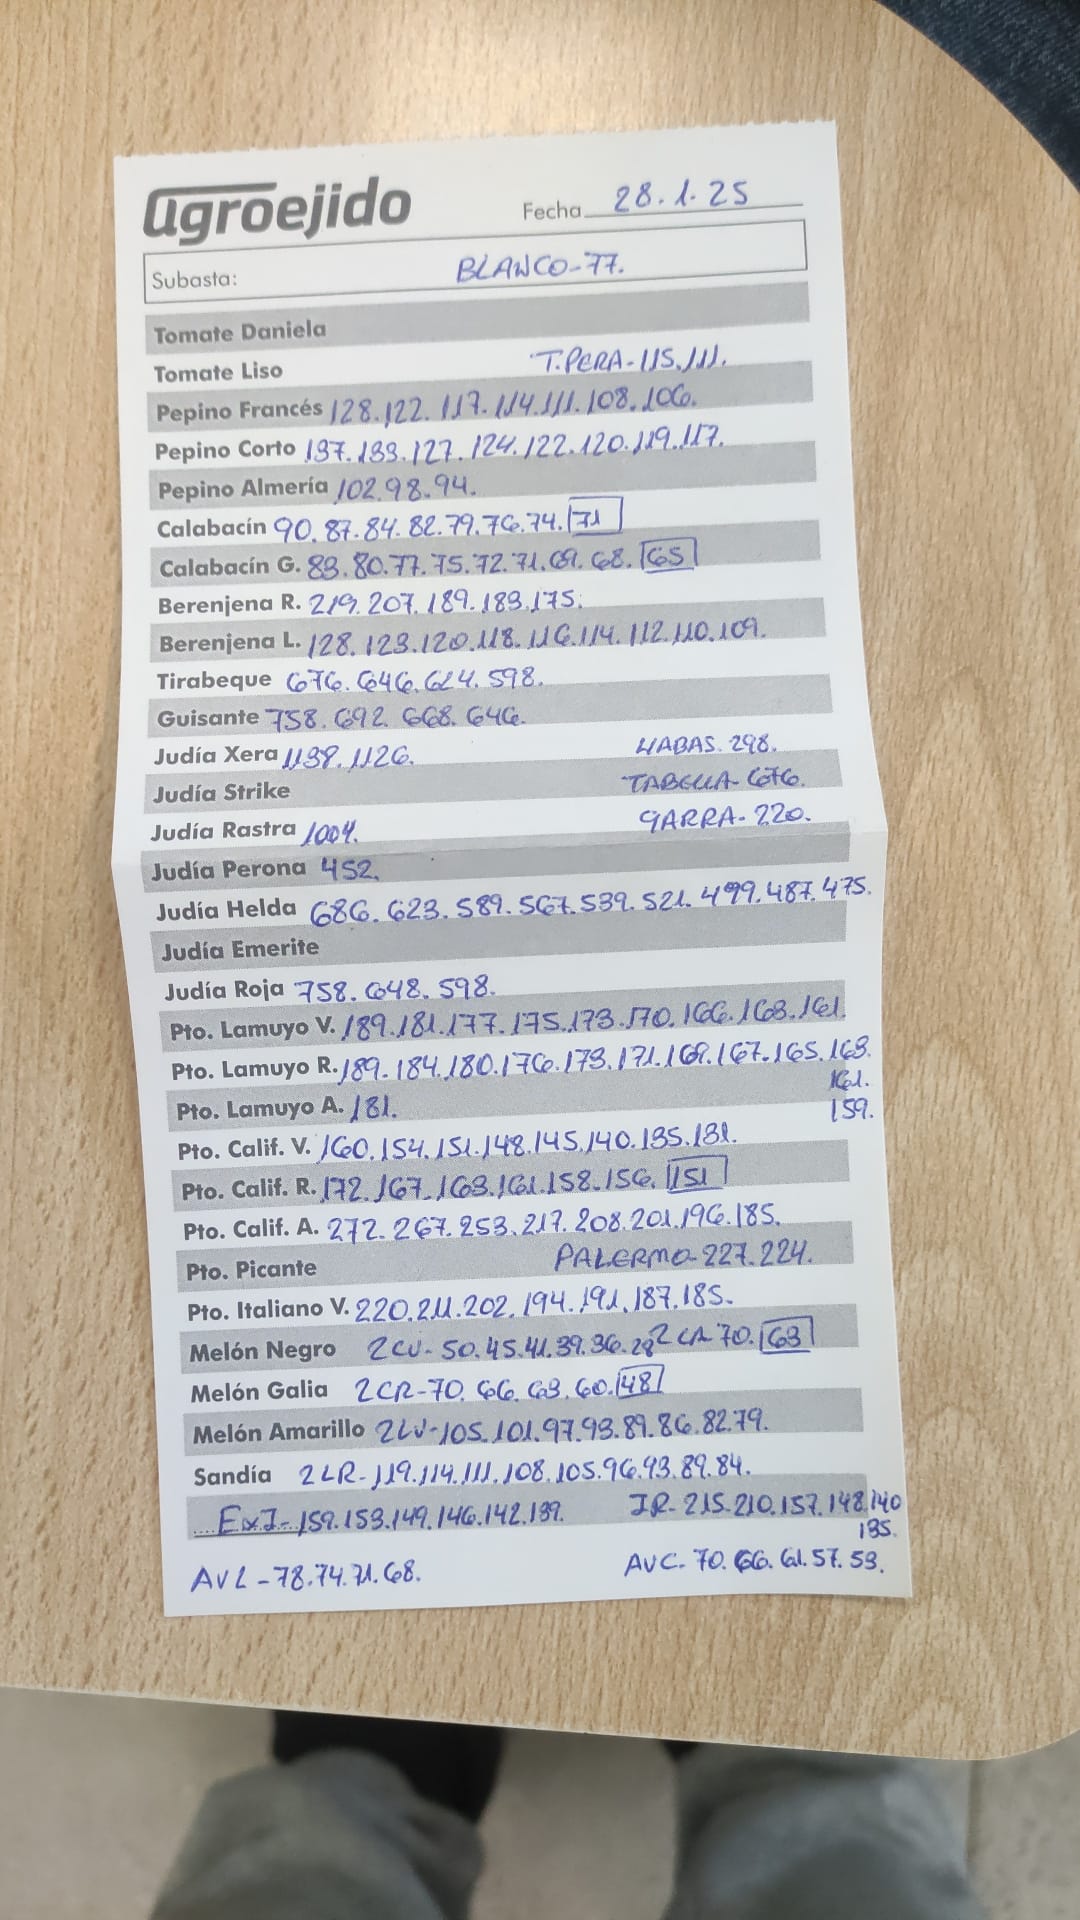 agroejido Fecha 28.1.25
Subasta: BLANCO-77.
Tomate Daniela
Tomate Liso T.PERA-115.111.
Pepino Francés 128.122.117.114.111.108.106.
Pepino Corto 137.133.127.124.122.120.119.117.
Pepino Almería 102.98.94.
Calabacín 90.87.84.82.79.76.74.71
Calabacín G. 83.80.77.75.72.71.69.68.65
Berenjena R. 219.207.189.183.175.
Berenjena L. 128.123.120.118.116.114.112.110.109.
Tirabeque 676.646.624.598.
Guisante 758.692.668.646.
Judía Xera 1138.1126. HABAS. 298.
Judía Strike TABELLA-676.
Judía Rastra 1004. GARRA-220.
Judía Perona 452.
Judía Helda 686.623.589.567.539.521.499.487.475.
Judía Emerite
Judía Roja 758.648.598.
Pto. Lamuyo V. 189.181.177.175.173.170.166.163.161.
Pto. Lamuyo R. 189.184.180.176.173.171.169.167.165.163.
161.
Pto. Lamuyo A. 181. 159.
Pto. Calif. V. 160.154.151.148.145.140.135.131.
Pto. Calif. R. 172.167.163.161.158.156.151
Pto. Calif. A. 272.267.253.217.208.201.196.185.
Pto. Picante PALERMO-227.224.
Pto. Italiano V. 220.211.202.194.191.187.185.
Melón Negro 2CV-50.45.41.39.36.28 2CA 70.63
Melón Galia 2CR-70.66.63.60.48
Melón Amarillo 2LV-105.101.97.93.89.86.82.79.
Sandía 2LR-119.114.111.108.105.96.93.89.84.
ExI-159.153.149.146.142.139. IR-215.210.157.148.140
135.
AVL-78.74.71.68. AVC.70.66.61.57.53.